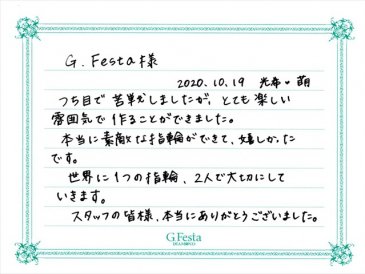 G.Festa様
2020.10.19 光希・萌
つち目で苦戦しましたが、とても楽しい
雰囲気で作ることができました。
本当に素敵な指輪ができて、嬉しかった
です。
世界に1つの指輪、2人で大切にして
いきます。
スタッフの皆様、本当にありがとうございました。
G.Festa
DIAMOND